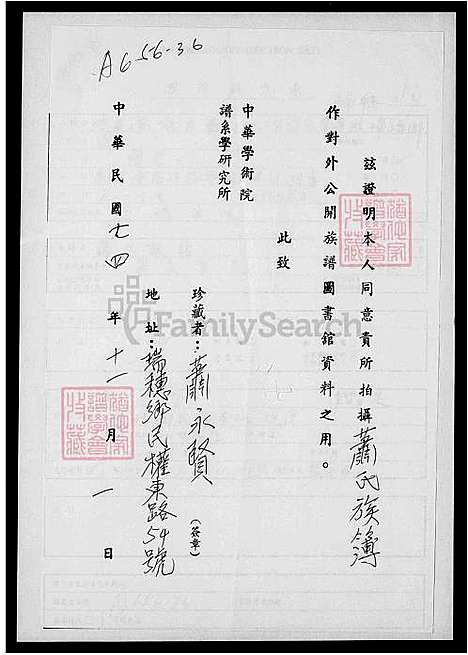 A656-36
茲證明本人同意貴所拍攝蕭氏族簿
作對外公開族譜圖書館資料之用。
此致
中華學術院
譜系學研究所
珍藏者：蕭永賢（簽章）
地址：瑞穗鄉民權東路54號
中華民國七四年十一月一日
FamilySearch